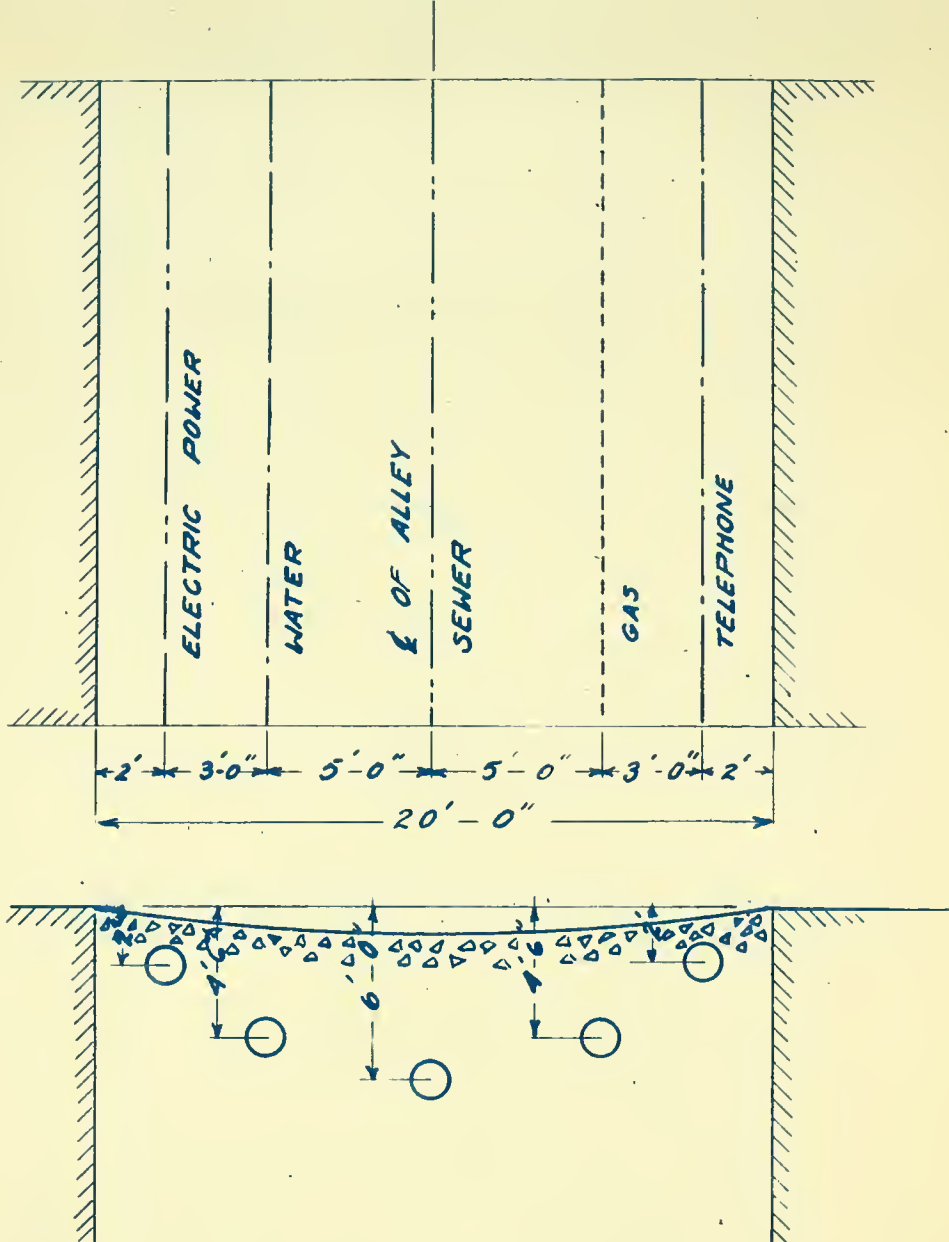 ELECTRIC POWER
WATER
℄ OF ALLEY
SEWER
GAS
TELEPHONE
2' 3'-0" 5'-0" 5'-0" 3'-0" 2'
20'-0"
2' 4'-6" 6'-0" 4'-6" 2'